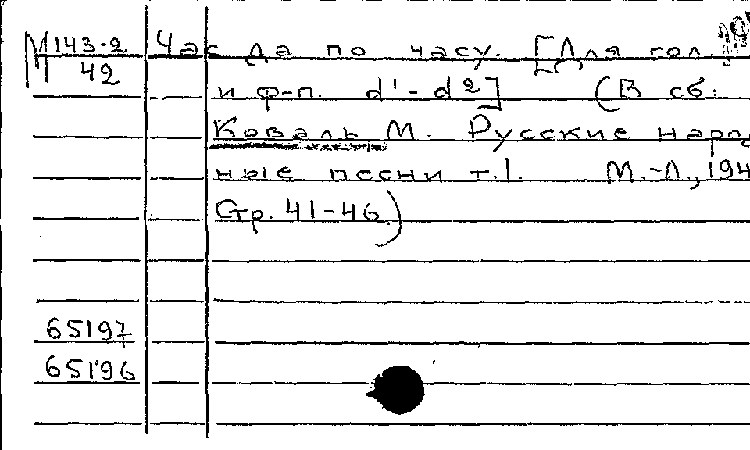 М 143-2 Час да по часу. [Для гол.
42 и ф-п. d¹-d²] (В сб:
Коваль М. Русские народ
ные песни т.1. М.-Л., 194
Стр. 41-46)
65197
65196